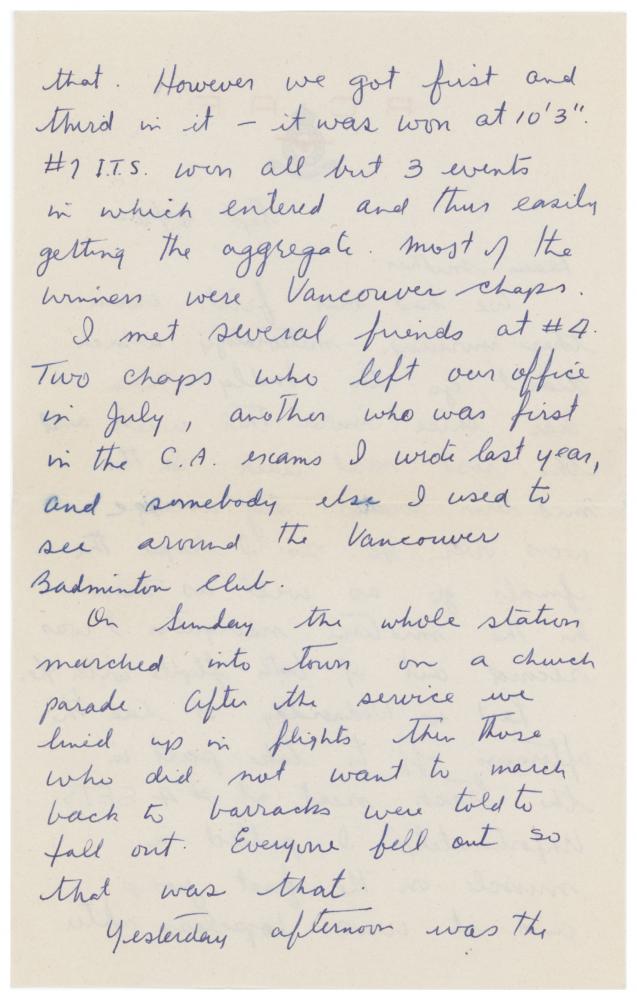 that. However we got first and
third in it – it was won at 10'3".
#7 I.T.S. won all but 3 events
in which entered and thus easily
getting the aggregate. Most of the
winners were Vancouver chaps.
I met several friends at #4.
Two chaps who left our office
in July, another who was first
in the C.A. exams I wrote last year,
and somebody else I used to
see around the Vancouver
Badminton Club.
On Sunday the whole station
marched into town on a church
parade. After the service we
lined up in flights then those
who did not want to march
back to barracks were told to
fall out. Everyone fell out so
that was that.
Yesterday afternoon was the